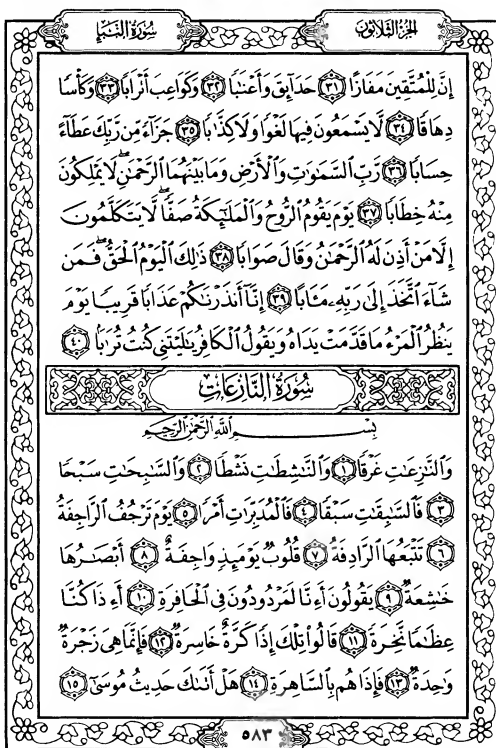 الجزء الثلاثون
سورة النبإ
إِنَّ لِلْمُتَّقِينَ مَفَازًا ٣١ حَدَآئِقَ وَأَعْنَٰبًا ٣٢ وَكَوَاعِبَ أَتْرَابًا ٣٣ وَكَأْسًا
دِهَاقًا ٣٤ لَّا يَسْمَعُونَ فِيهَا لَغْوًا وَلَا كِذَّٰبًا ٣٥ جَزَآءً مِّن رَّبِّكَ عَطَآءً
حِسَابًا ٣٦ رَّبِّ ٱلسَّمَٰوَٰتِ وَٱلْأَرْضِ وَمَا بَيْنَهُمَا ٱلرَّحْمَٰنِ ۖ لَا يَمْلِكُونَ
مِنْهُ خِطَابًا ٣٧ يَوْمَ يَقُومُ ٱلرُّوحُ وَٱلْمَلَٰٓئِكَةُ صَفًّا ۖ لَّا يَتَكَلَّمُونَ
إِلَّا مَنْ أَذِنَ لَهُ ٱلرَّحْمَٰنُ وَقَالَ صَوَابًا ٣٨ ذَٰلِكَ ٱلْيَوْمُ ٱلْحَقُّ ۖ فَمَن
شَآءَ ٱتَّخَذَ إِلَىٰ رَبِّهِۦ مَـَٔابًا ٣٩ إِنَّآ أَنذَرْنَٰكُمْ عَذَابًا قَرِيبًا يَوْمَ
يَنظُرُ ٱلْمَرْءُ مَا قَدَّمَتْ يَدَاهُ وَيَقُولُ ٱلْكَافِرُ يَٰلَيْتَنِى كُنتُ تُرَٰبًۢا ٤٠
سورة النازعات
بِسْمِ ٱللَّهِ ٱلرَّحْمَٰنِ ٱلرَّحِيمِ
وَٱلنَّٰزِعَٰتِ غَرْقًا ١ وَٱلنَّٰشِطَٰتِ نَشْطًا ٢ وَٱلسَّٰبِحَٰتِ سَبْحًا
٣ فَٱلسَّٰبِقَٰتِ سَبْقًا ٤ فَٱلْمُدَبِّرَٰتِ أَمْرًا ٥ يَوْمَ تَرْجُفُ ٱلرَّاجِفَةُ
٦ تَتْبَعُهَا ٱلرَّادِفَةُ ٧ قُلُوبٌ يَوْمَئِذٍ وَاجِفَةٌ ٨ أَبْصَٰرُهَا
خَٰشِعَةٌ ٩ يَقُولُونَ أَءِنَّا لَمَرْدُودُونَ فِى ٱلْحَافِرَةِ ١٠ أَءِذَا كُنَّا
عِظَٰمًا نَّخِرَةً ١١ قَالُوا۟ تِلْكَ إِذًا كَرَّةٌ خَاسِرَةٌ ١٢ فَإِنَّمَا هِىَ زَجْرَةٌ
وَٰحِدَةٌ ١٣ فَإِذَا هُم بِٱلسَّاهِرَةِ ١٤ هَلْ أَتَىٰكَ حَدِيثُ مُوسَىٰٓ ١٥
٥٨٣